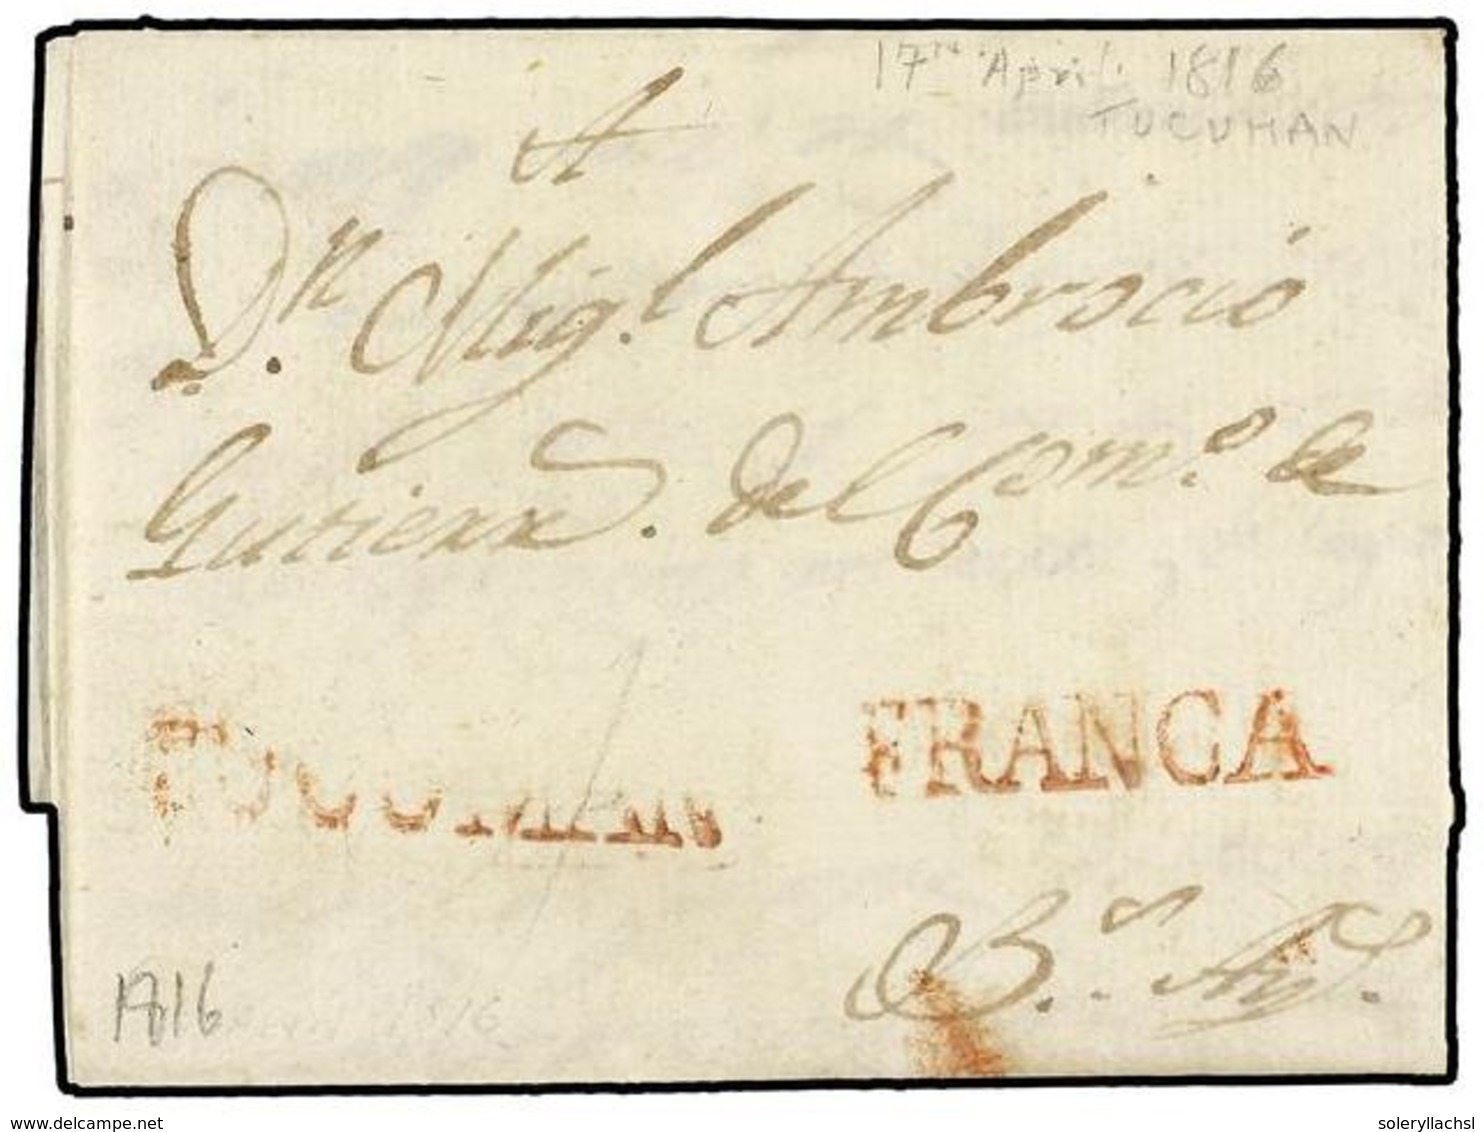 17th April 1816
TUCUMAN
A
Dn. Mig.l Ambrocio
Gutierres. del Com.o de
TUCUMAN
FRANCA
B.s Ay.s
1816
www.delcampe.net
soleryllachsl